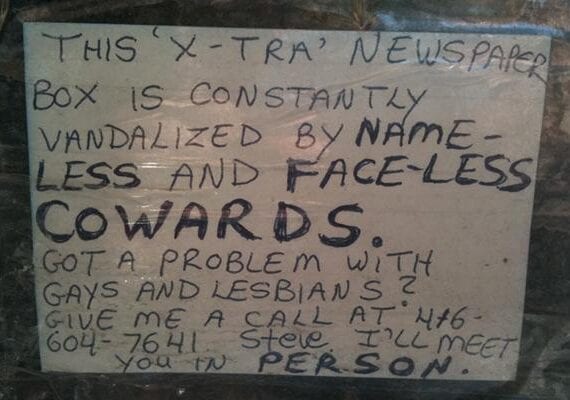 THIS 'X-TRA' NEWSPAPER
BOX IS CONSTANTLY
VANDALIZED BY NAME-
LESS AND FACE-LESS
COWARDS.
GOT A PROBLEM WITH
GAYS AND LESBIANS?
GIVE ME A CALL AT 416-
604-7641. Steve. I'LL MEET
YOU IN PERSON.